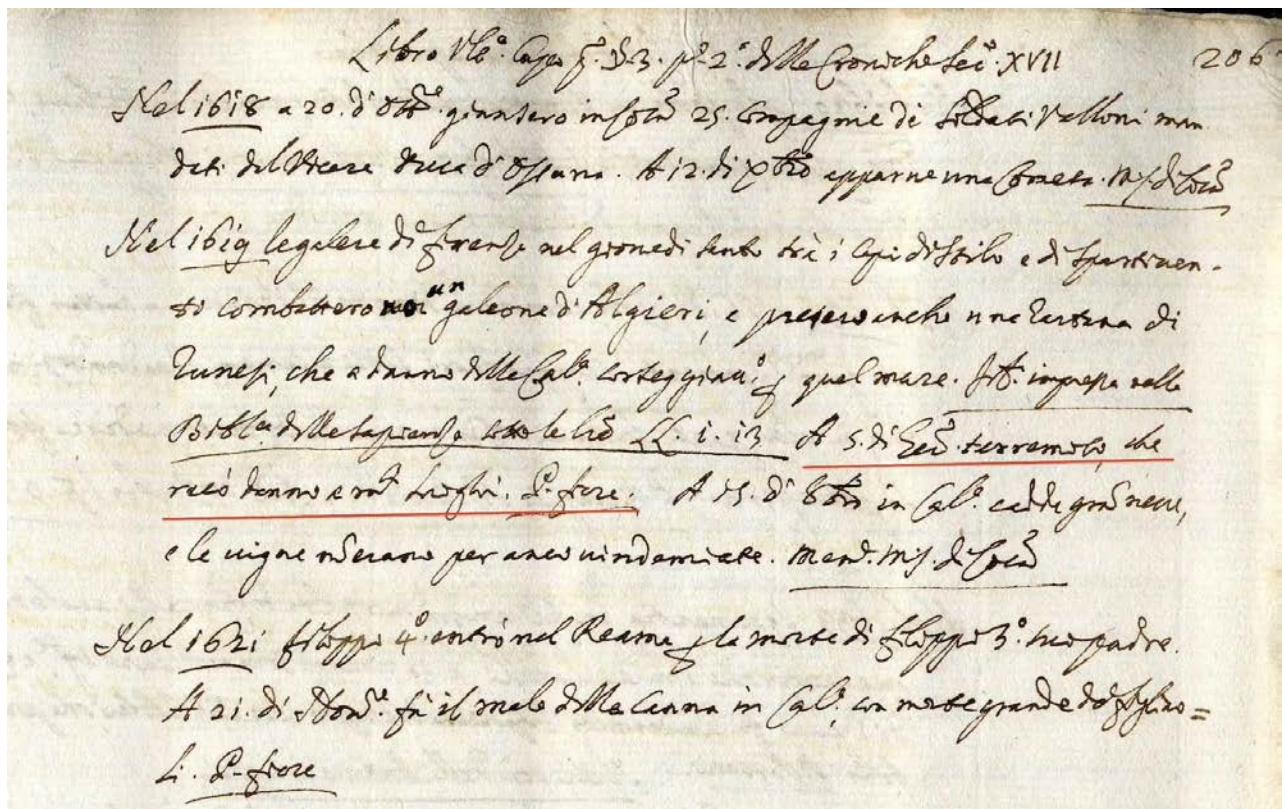 Libro Vlt.º Capo p.º §.3. p.º 2.º delle Croniche Sec.º XVII 206
Nel 1618 a 20. di ott.e giunsero in 25. Compagnie di Soldati Valloni man
dati dal Vicere Duca d'Ossuna. A 12. di Xbro apparue una Cometa. Ms. di
Nel 1619 le galere di firenze nel giouedi santo trà i Capi di Stilo e di Spartiuen-
to combattero un galeone d'Algieri, e presero anche una Tartana di
Tunesi, che a danno delle Cal.e corseggiaua p quel mare. impressa nella
Bibl.ca della Sapienza sotto le LL. i. 13 A 5. di terremoto, che
recò danno a luoghi. P. fiore. A 15. di 8bro in Cal.a cadde neue,
e le uigne erano per anco uindemiate. Ms. di
Nel 1621 filippo 4.º entrò nel Reame p la morte di filippo 3.º suo padre.
A 21. di fù il male della Canna in Cal.a con morte grande de figliuo=
li. P. fiore